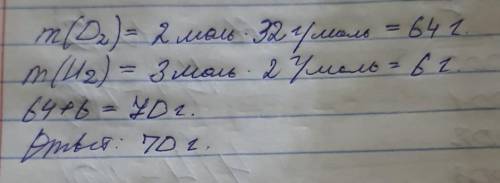 m(O₂) = 2 моль · 32 г/моль = 64 г.
m(H₂) = 3 моль · 2 г/моль = 6 г.
64+6 = 70 г.
Ответ: 70 г.